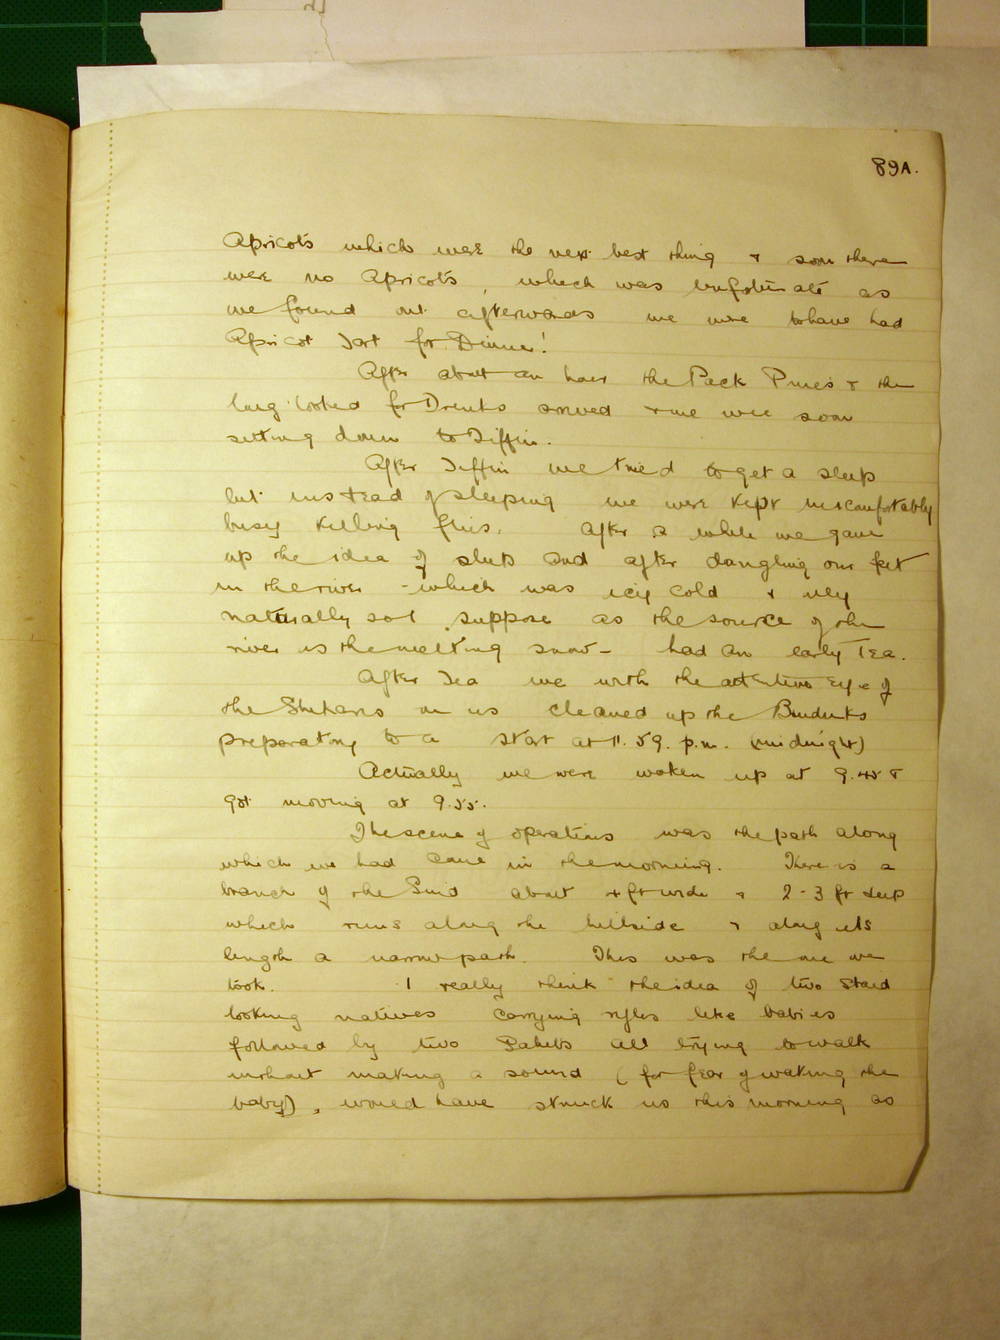 89A.
Apricots which were the next best thing & soon there
were no Apricots, which was unfortunate as
we found out afterwards we were to have had
Apricot Tart for Dinner!
After about an hour the Pack Ponies & the
long looked for Drinks arrived & we were soon
setting down to Tiffin.
After Tiffin we tried to get a sleep
but instead of sleeping we were kept uncomfortably
busy killing flies. After a while we gave
up the idea of sleep and after dangling our feet
in the river - which was icy cold & very
naturally so I suppose as the source of the
river is the melting snow - had an early Tea.
After Tea we with the attentive eye of
the Shikaris on us cleaned up the Bunduks
preparatory to a start at 11.59. p.m. (midnight)
Actually we were woken up at 9.45 &
got moving at 9.55.
The scene of operations was the path along
which we had came in the morning. There is a
branch of the Sind about 4 ft wide & 2-3 ft deep
which runs along the hillside & along its
length a narrow path. This was the one we
took. I really think the idea of two staid
looking natives carrying rifles like babies
followed by two Sahebs all trying to walk
without making a sound (for fear of waking the
baby), would have struck us this morning as